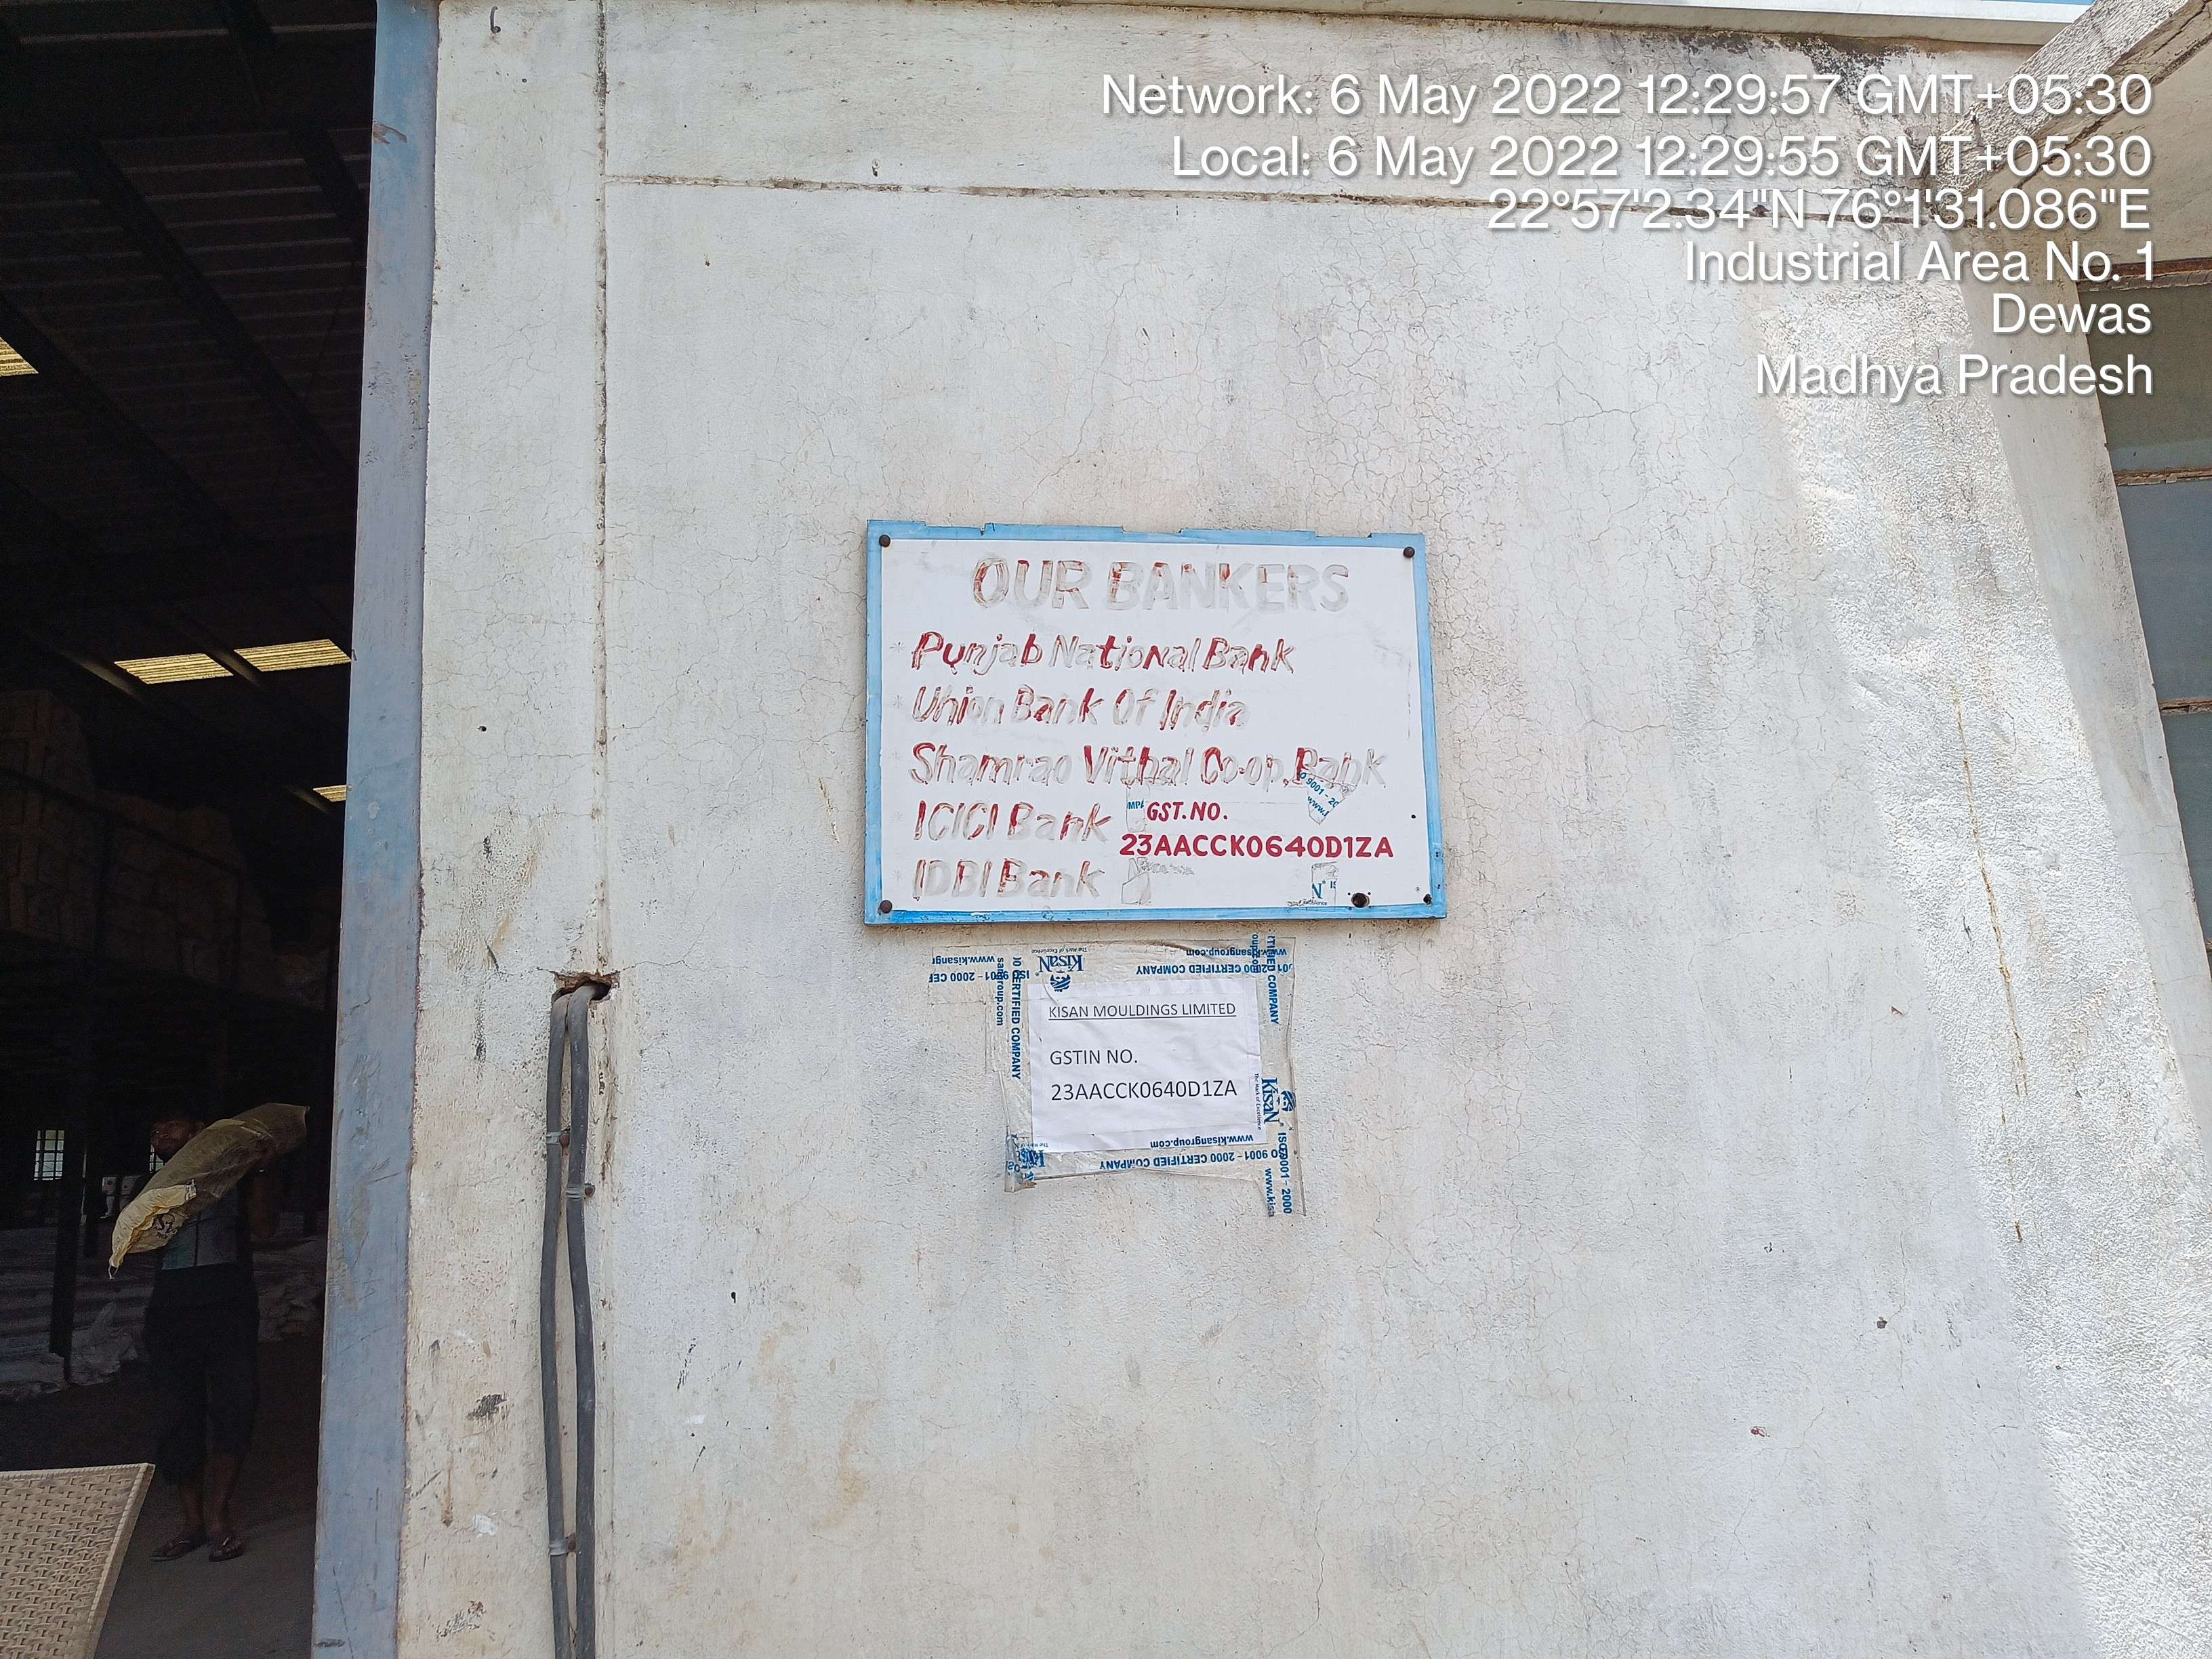 Network: 6 May 2022 12:29:57 GMT+05:30
Local: 6 May 2022 12:29:55 GMT+05:30
22°57'2.34"N 76°1'31.086"E
Industrial Area No. 1
Dewas
Madhya Pradesh
OUR BANKERS
* Punjab National Bank
* Union Bank Of India
Shamrao Vithal Co-op. Bank
ICICI Bank
GST.NO.
23AACCK0640D1ZA
IDBI Bank
www.kisangroup.com
ISO 9001 - 2000 CERTIFIED COMPANY
KisaN
The Mark of Excellence
KISAN MOULDINGS LIMITED
GSTIN NO.
23AACCK0640D1ZA
KisaN
The Mark of Excellence
www.kisangroup.com
ISO 9001 - 2000 CERTIFIED COMPANY